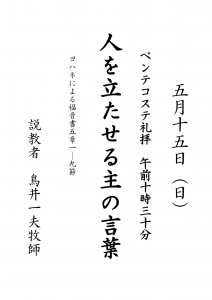 五月十五日（日）
ペンテコステ礼拝　午前十時三十分
人を立たせる主の言葉
ヨハネによる福音書五章一―九節
説教者　鳥井一夫牧師